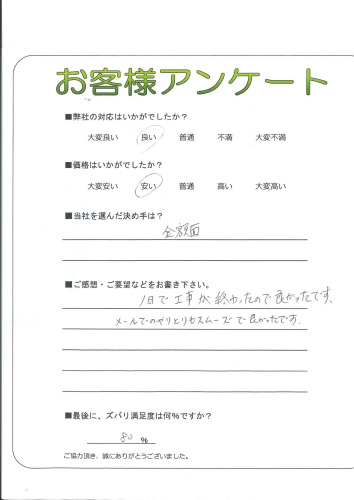 お客様アンケート
■弊社の対応はいかがでしたか？
大変良い 良い 普通 不満 大変不満
■価格はいかがでしたか？
大変安い 安い 普通 高い 大変高い
■当社を選んだ決め手は？
金額面
■ご感想・ご要望などをお書き下さい。
1日で工事が終わったので良かったです。
メールでのやりとりもスムーズで良かったです。
■最後に、ズバリ満足度は何％ですか？
80 %
ご協力頂き、誠にありがとうございました。